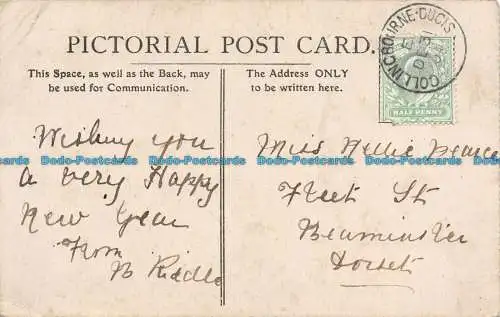 PICTORIAL POST CARD.
This Space, as well as the Back, may
be used for Communication.
The Address ONLY
to be written here.
COLLINGBOURNE-DUCIS
HALF PENNY
Wishing you
a very Happy
New Year
From
B Riddle
Miss Nellie
Fleet St
Beaminster
Dorset
Dodo-Postcards Dodo-Postcards Dodo-Postcards Dodo-Postcards